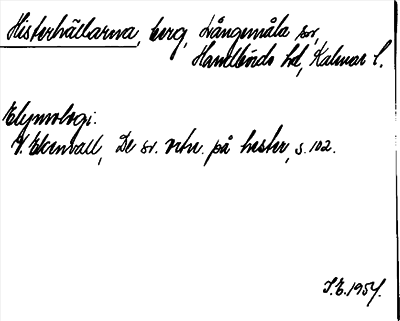 Histerhällarna, berg, Långemåla sn,
Handbörds hd, Kalmar l.
Etymologi:
V. Ekenvall, De sv. ortn. på hester, s. 102.
S.E. 1954.